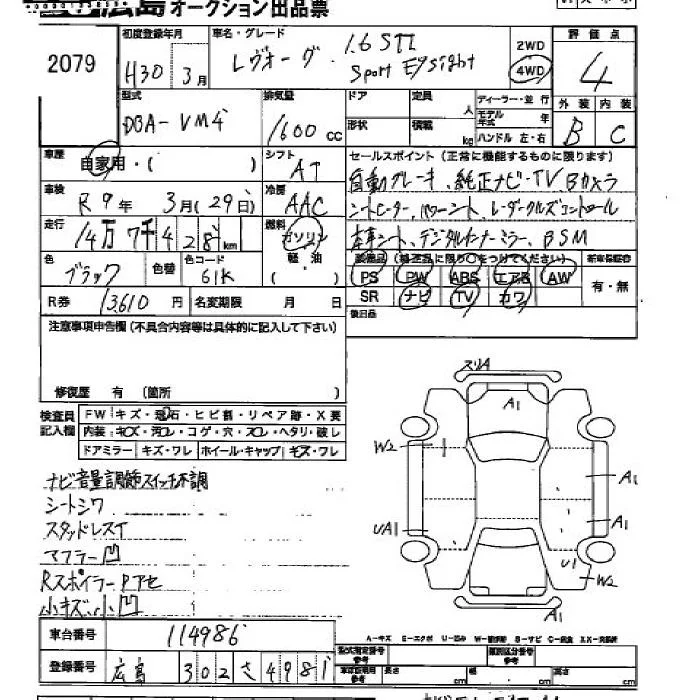 広島 オークション出品票
2079
初度登録年月 H30 3月
車名・グレード レヴォーグ 1.6 STI Sport Eyesight
2WD 4WD
評価点 4
型式 DBA-VM4
排気量 1600 cc
ドア 定員 人
形状 積載 kg
ディーラー・並行
モデル年式 年
ハンドル 左・右
外装 内装
B C
車歴 自家用・( )
シフト AT
セールスポイント (正常に機能するものに限ります)
車検 R 9年 3月(29日)
冷房 AAC
自動ブレーキ、純正ナビ・TV Bカメラ
シートヒーター、パワーシート、レーダークルズコントロール
走行 14万 7千 4 2 8 km
燃料 ガソリン 軽・油 ( )
本革シート、デジタルインナーミラー、BSM
色 ブラック 色替 色コード 61K
装備品 (純正品に限り○をつけてください)
PS PW ABS エアB AW
SR ナビ TV カワ
新車保証書 有・無
R券 13,610 円 名変期限 月 日
後日品
注意事項申告欄 (不具合内容等は具体的に記入して下さい)
修復歴 有 (箇所 )
検査員記入欄
FW キズ・飛石・ヒビ割・リペア跡・X要
内装 キズ・汚レ・コゲ・穴・スレ・ヘタリ・破レ
ドアミラー キズ・ワレ ホイール・キャップ キズ・ワレ
ナビ音量調節スイッチ不調
シートシワ
スタッドレスT
マフラー凹
Rスポイラー Pアセ
小キズ、小凹
スリA
A1
W2
A1
UA1
A1
U1
W2
A1
車台番号 114986
登録番号 広島 302 さ 4981
A-キズ E-エクボ U-凹み W-補修跡 S-サビ C-腐食 XX-交換済
型式指定番号 参考
類別区分番号 参考
車体証明用 参考 長さ cm 幅 cm 高さ cm